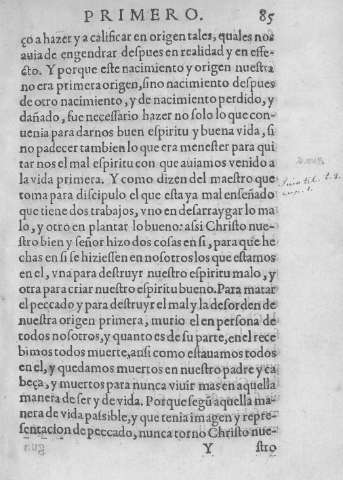 PRIMERO. 85
ço a hazer y a calificar en origen tales, quales nos
auia de engendrar despues en realidad y en effe-
cto. Y porque este nacimiento y origen nuestra
no era primera origen, sino nacimiento despues
de otro nacimiento, y de nacimiento perdido, y
dañado, fue necessario hazer no solo lo que con-
uenia para darnos buen espiritu y buena vida, si
no padecer tambien lo que era menester para qui
tar nos el mal espiritu con que auiamos venido a
la vida primera. Y como dizen del maestro que
toma para discipulo el que esta ya mal enseñado
que tiene dos trabajos, vno en desarraygar lo ma
lo, y otro en plantar lo bueno: assi Christo nue-
stro bien y señor hizo dos cosas en si, para que he
chas en si se hiziessen en nosotros los que estamos
en el, vna para destruyr nuestro espiritu malo, y
otra para criar nuestro espiritu bueno. Para matar
el peccado y para destruyr el mal y la desorden de
nuestra origen primera, murio el en persona de
todos nosotros, y quanto es de su parte, en el rece
bimos todos muerte, ansi como estauamos todos
en el, y quedamos muertos en nuestro padre y ca
beça, y muertos para nunca viuir mas en aquella
manera de ser y de vida. Porque segũ aquella ma-
nera de vida passible, y que tenia imagen y repre-
sentacion de peccado, nunca torno Christo nue-
Y stro